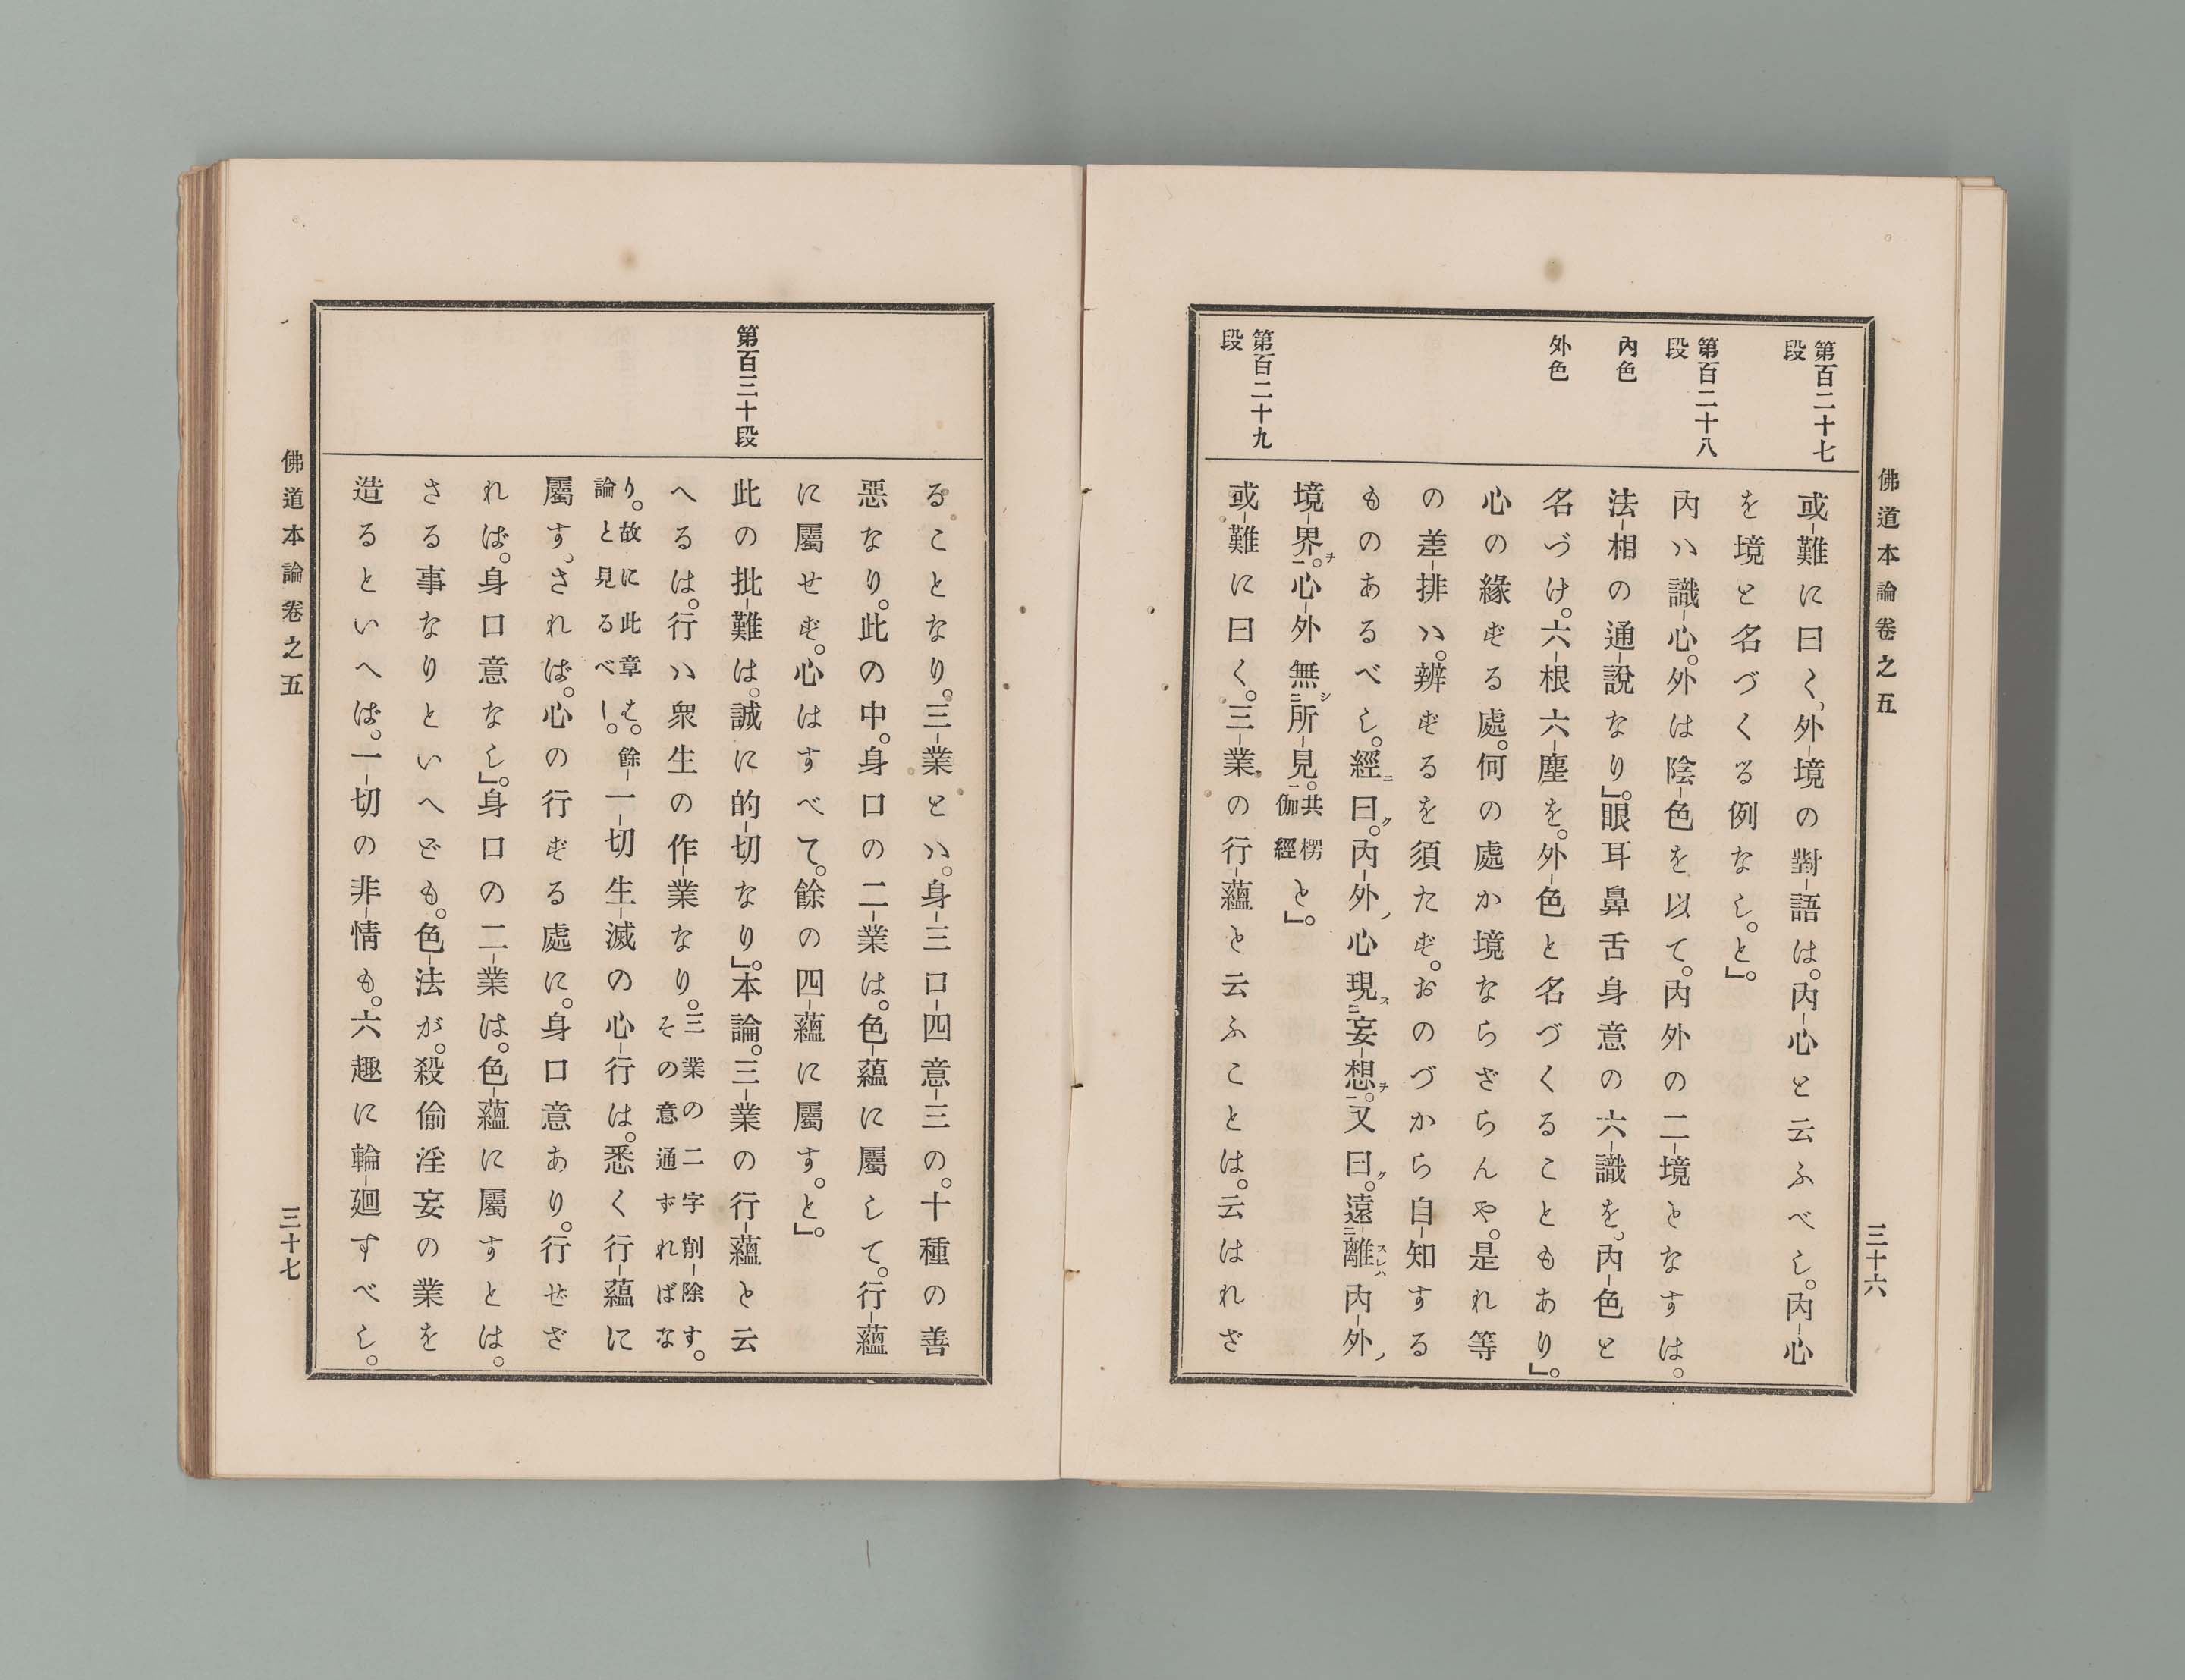 佛道本論卷之五
三十六
第百二十七段
或難に曰く、外境の對語は。內心と云ふべし。內心
を境と名づくる例なし。と」。
第百二十八段
內ハ識心。外は陰色を以て。內外の二境となすは。
內色
法相の通說なり」。眼耳鼻舌身意の六識を、內色と
外色
名づけ。六根六塵を。外色と名づくることもあり」。
心の緣ずる處。何の處か境ならざらんや。是れ等
の差排ハ。辨ずるを須たず。おのづから自知する
ものあるべし。經ニ曰ク。內外ノ心現ス二妄想ヲ一。又曰ク。遠二離スレハ內外ノ
境界ヲ一。心外無シ二所見一。共楞伽經と」。
第百二十九段
或難に曰く。三業の行蘊と云ふことは。云はれざ
ることなり。三業とハ。身三口四意三の。十種の善
惡なり。此の中。身口の二業は。色蘊に屬して。行蘊
に屬せず。心はすべて。餘の四蘊に屬す。と」。
第百三十段
此の批難は。誠に的切なり」。本論。三業の行蘊と云
へるは。行ハ衆生の作業なり。三業の二字削除す。その意通ずればな
り。故に此章は。餘論と見るべし。一切生滅の心行は。悉く行蘊に
屬す。されば。心の行ずる處に。身口意あり。行せざ
れば。身口意なし」。身口の二業は。色蘊に屬すとは。
さる事なりといへども。色法が。殺偷淫妄の業を
造るといへば。一切の非情も。六趣に輪廻すべし。
佛道本論卷之五
三十七